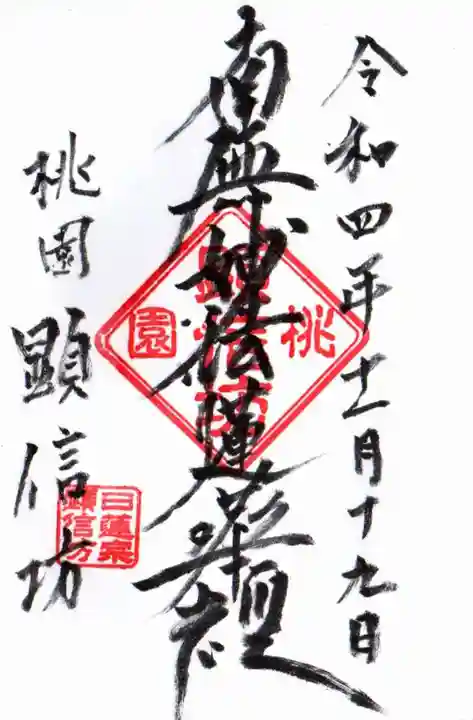 令和四年十一月十九日
南無妙法蓮華経
桃園
顕信坊
桃園 顕信坊
日蓮宗
顕信坊